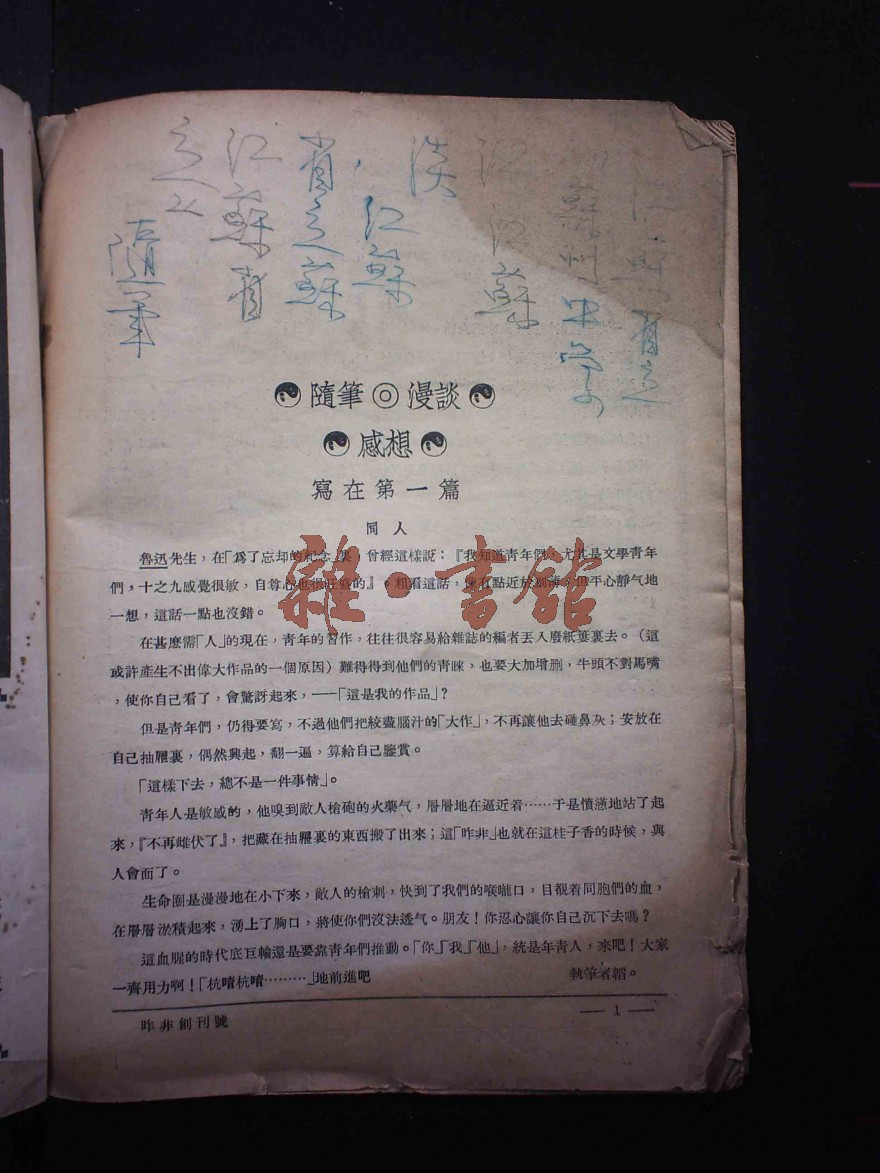 江蘇省立
蘇州中學
江蘇
淡
江蘇
省立蘇
江蘇省
立
隨筆
隨筆◎漫談
感想
寫在第一篇
同人
魯迅先生，在「爲了忘却的紀念」集，曾經這樣說：『我知道青年們，尤其是文學青年
們，十之九感覺很敏，自尊心也很旺盛的』。粗看這話，像有點近於刻薄，但平心靜气地
一想，這話一點也沒錯。
在甚麼需「人」的現在，青年的習作，往往很容易給雜誌的編者丟入廢紙簍裏去。（這
或許產生不出偉大作品的一個原因）難得得到他們的青睞，也要大加增删，牛頭不對馬嘴
，使你自己看了，會驚訝起來，——「這是我的作品」？
但是青年們，仍得要寫，不過他們把絞盡腦汁的「大作」，不再讓他去碰鼻灰；安放在
自己抽屜裏，偶然興起，翻一遍，算給自己鑒賞。
「這樣下去，總不是一件事情」。
青年人是敏感的，他嗅到敵人槍砲的火藥气，層層地在逼近着……于是憤懣地站了起
來，『不再雌伏了』，把藏在抽屜裏的東西搬了出來；這「昨非」也就在這桂子香的時候，與
人會面了。
生命圈是漫漫地在小下來，敵人的槍刺，快到了我們的喉嚨口，目覩着同胞們的血，
在層層淤積起來，湧上了胸口，將使你們沒法透气。朋友！你忍心讓你自己沉下去嗎？
這血腥的時代底巨輪還是要靠青年們推動。「你」「我」「他」，統是年青人，來吧！大家
一齊用力啊！「杭唷杭唷………」地前進吧 執筆者韜。
昨非創刊號
— 1 —
雜·書館